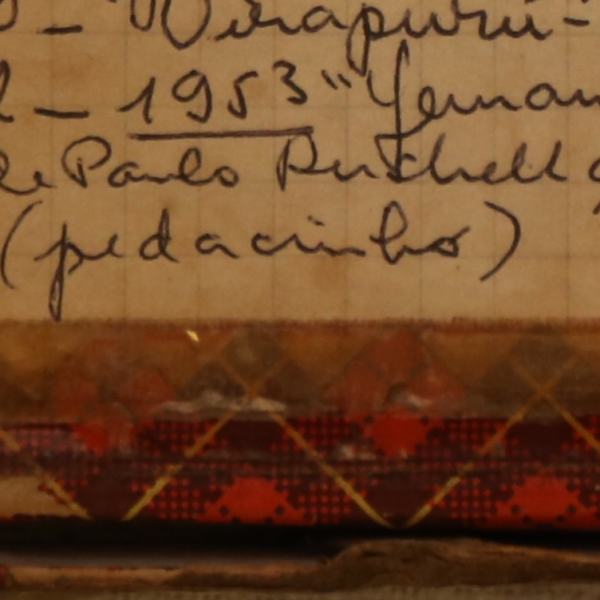 - Uirapurú -
- 1953 "Yeman
de Paulo Ruschell
(pedacinho)